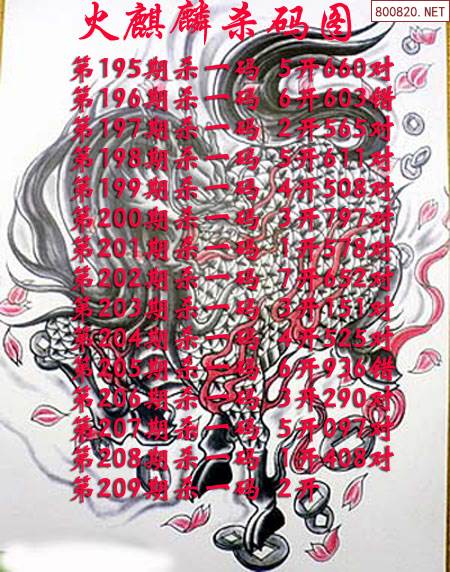 火麒麟杀码图
800820.NET
第195期杀一码 5开660对
第196期杀一码 6开603错
第197期杀一码 2开565对
第198期杀一码 5开611对
第199期杀一码 4开508对
第200期杀一码 3开797对
第201期杀一码 1开578对
第202期杀一码 7开652对
第203期杀一码 3开151对
第204期杀一码 4开525对
第205期杀一码 6开936错
第206期杀一码 3开290对
第207期杀一码 5开097对
第208期杀一码 1开408对
第209期杀一码 2开